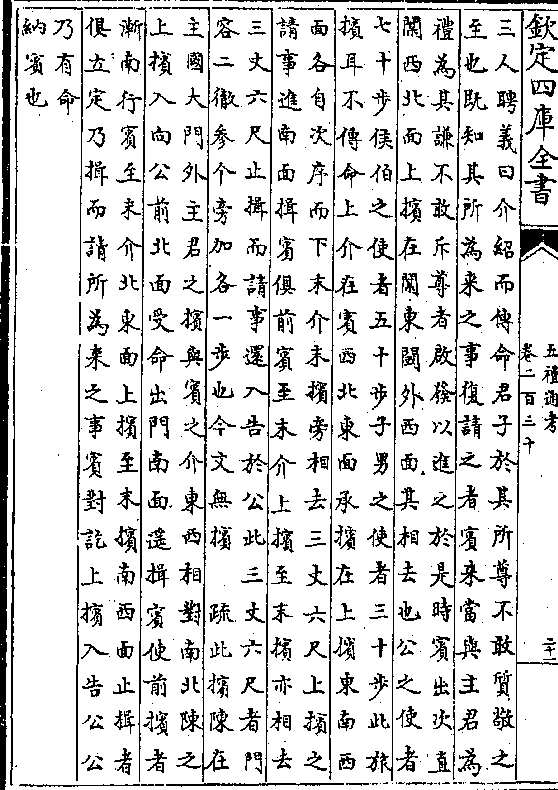 欽定四庫全書
五禮通考
卷二百三十
二十二
三人聘義曰介紹而傳命君子於其所尊不敢質敬之
至也既知其所為來之事復請之者賓來當與主君為
禮為其謙不敢斥尊者啟發以進之於是時賓出次直
闑西北面上擯在闑東閾外西面其相去也公之使者
七十步侯伯之使者五十步子男之使者三十步此旅
擯耳不傳命上介在賓西北東面承擯在上擯東南西
面各自次序而下末介末擯旁相去三丈六尺上擯之
請事進南面揖賓俱前賓至末介上擯至末擯亦相去
三丈六尺止揖而請事還入告於公此三丈六尺者門
容二徹參个旁加各一步也今文無擯 疏此擯陳在
主國大門外主君之擯與賓之介東西相對南北陳之
上擯入向公前北面受命出門南面遥揖賓使前擯者
漸南行賓至末介北東面上擯至末擯南西面止揖者
俱立定乃揖而請所為來之事賓對訖上擯入告公公
乃有命
納賓也